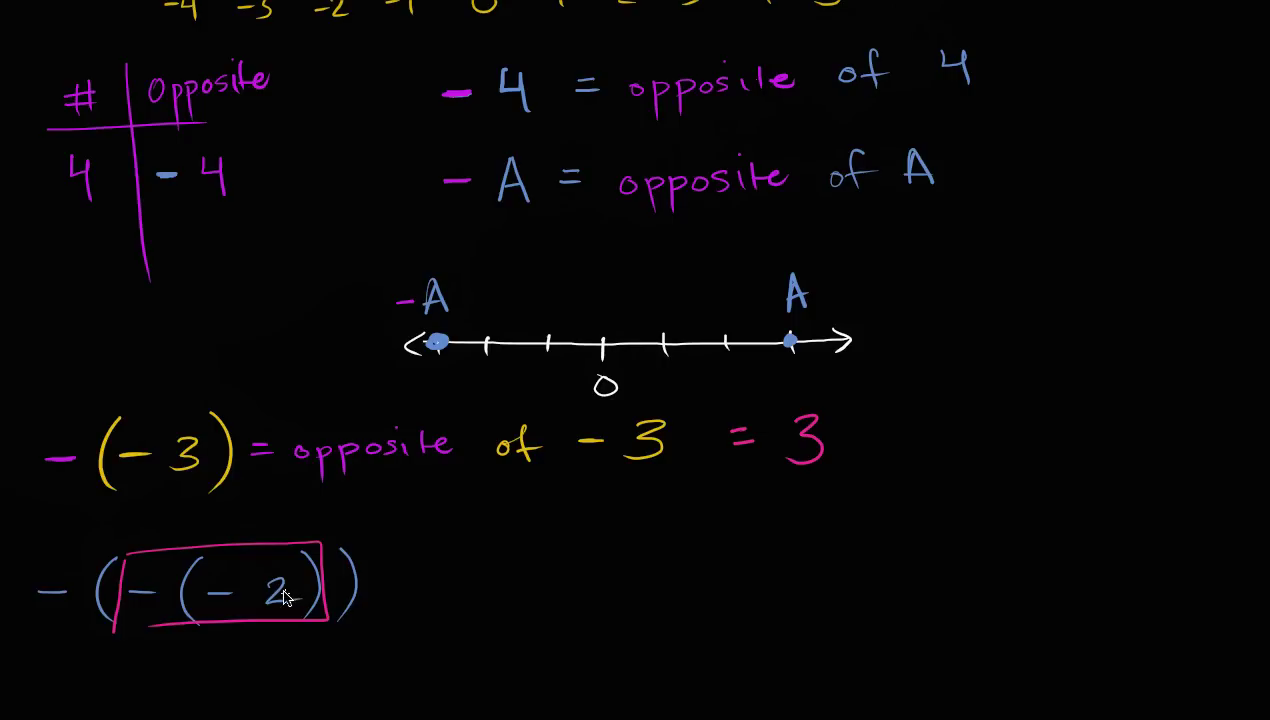 -4 -3 -2 -1 0 1 2 3 4 5
# Opposite
4 - 4
- 4 = opposite of 4
- A = opposite of A
-A A
0
- (- 3) = opposite of - 3 = 3
- (- (- 2))